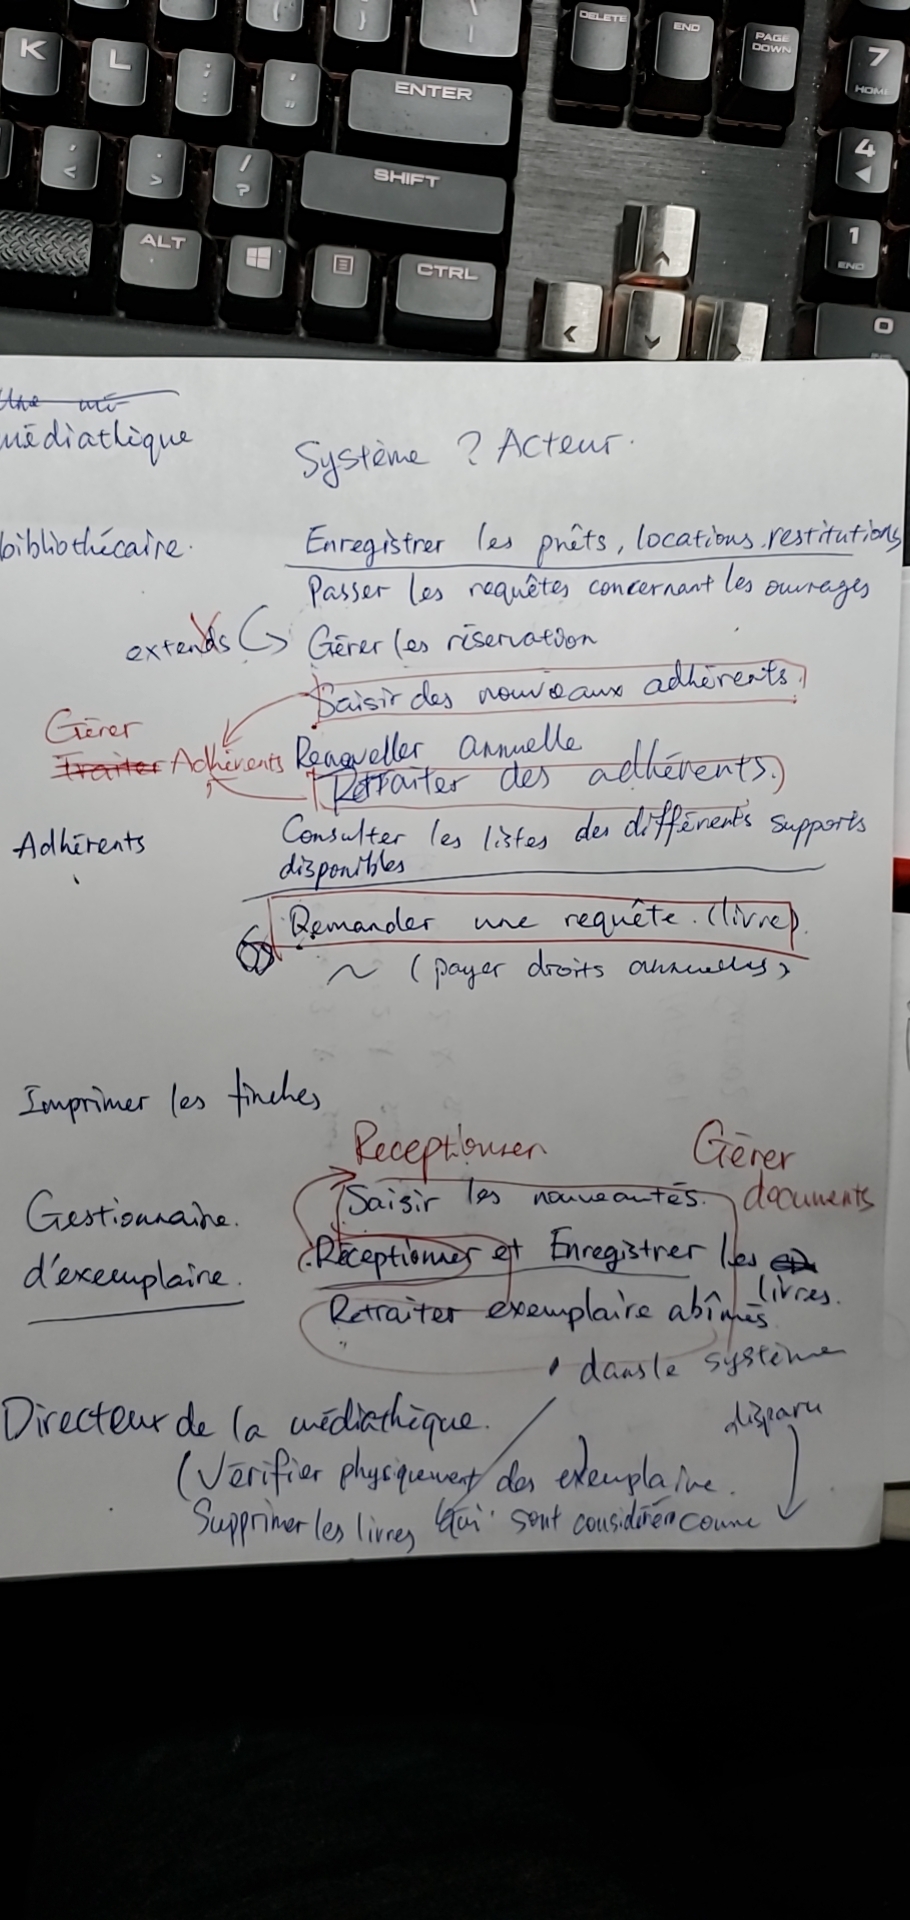 K L ; : ' " ENTER
DELETE END PAGE DOWN 7 HOME
, < . > / ? SHIFT 4
ALT CTRL 1 END
0
Une
médiathèque
Système ? Acteur.
bibliothécaire.
Enregistrer les prêts, locations, restitutions
Passer les requêtes concernant les ouvrages
extends Gérer les réservation
Saisir des nouveaux adhérents.
Gérer
Traiter Adhérents Renouveller annuelle
Retraiter des adhérents.
Adhérents
Consulter les listes des différents supports
disponibles
Demander une requête. (livre)
~ (payer droits annuelles)
Imprimer les finches
Receptionner Gérer
documents
Saisir les nouveautés.
Gestionnaire.
d'exemplaire.
Réceptionner et Enregistrer les
livres.
Retraiter exemplaire abîmés
dans le système
Directeur de la médiathèque.
disparu
(Vérifier physiquement des exemplaire.
Supprimer les livres qui sont considérén comme